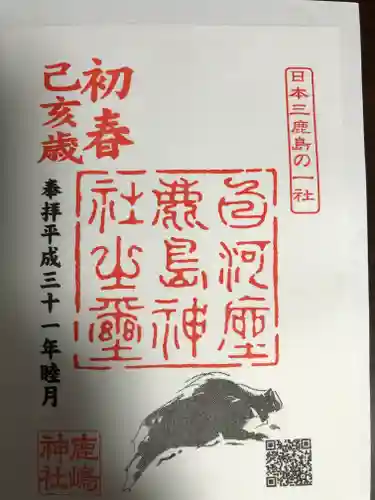 日本三鹿島の一社
白河座
鹿島神
社之璽
初春
己亥歳
奉拝平成三十一年睦月
鹿嶋
神社